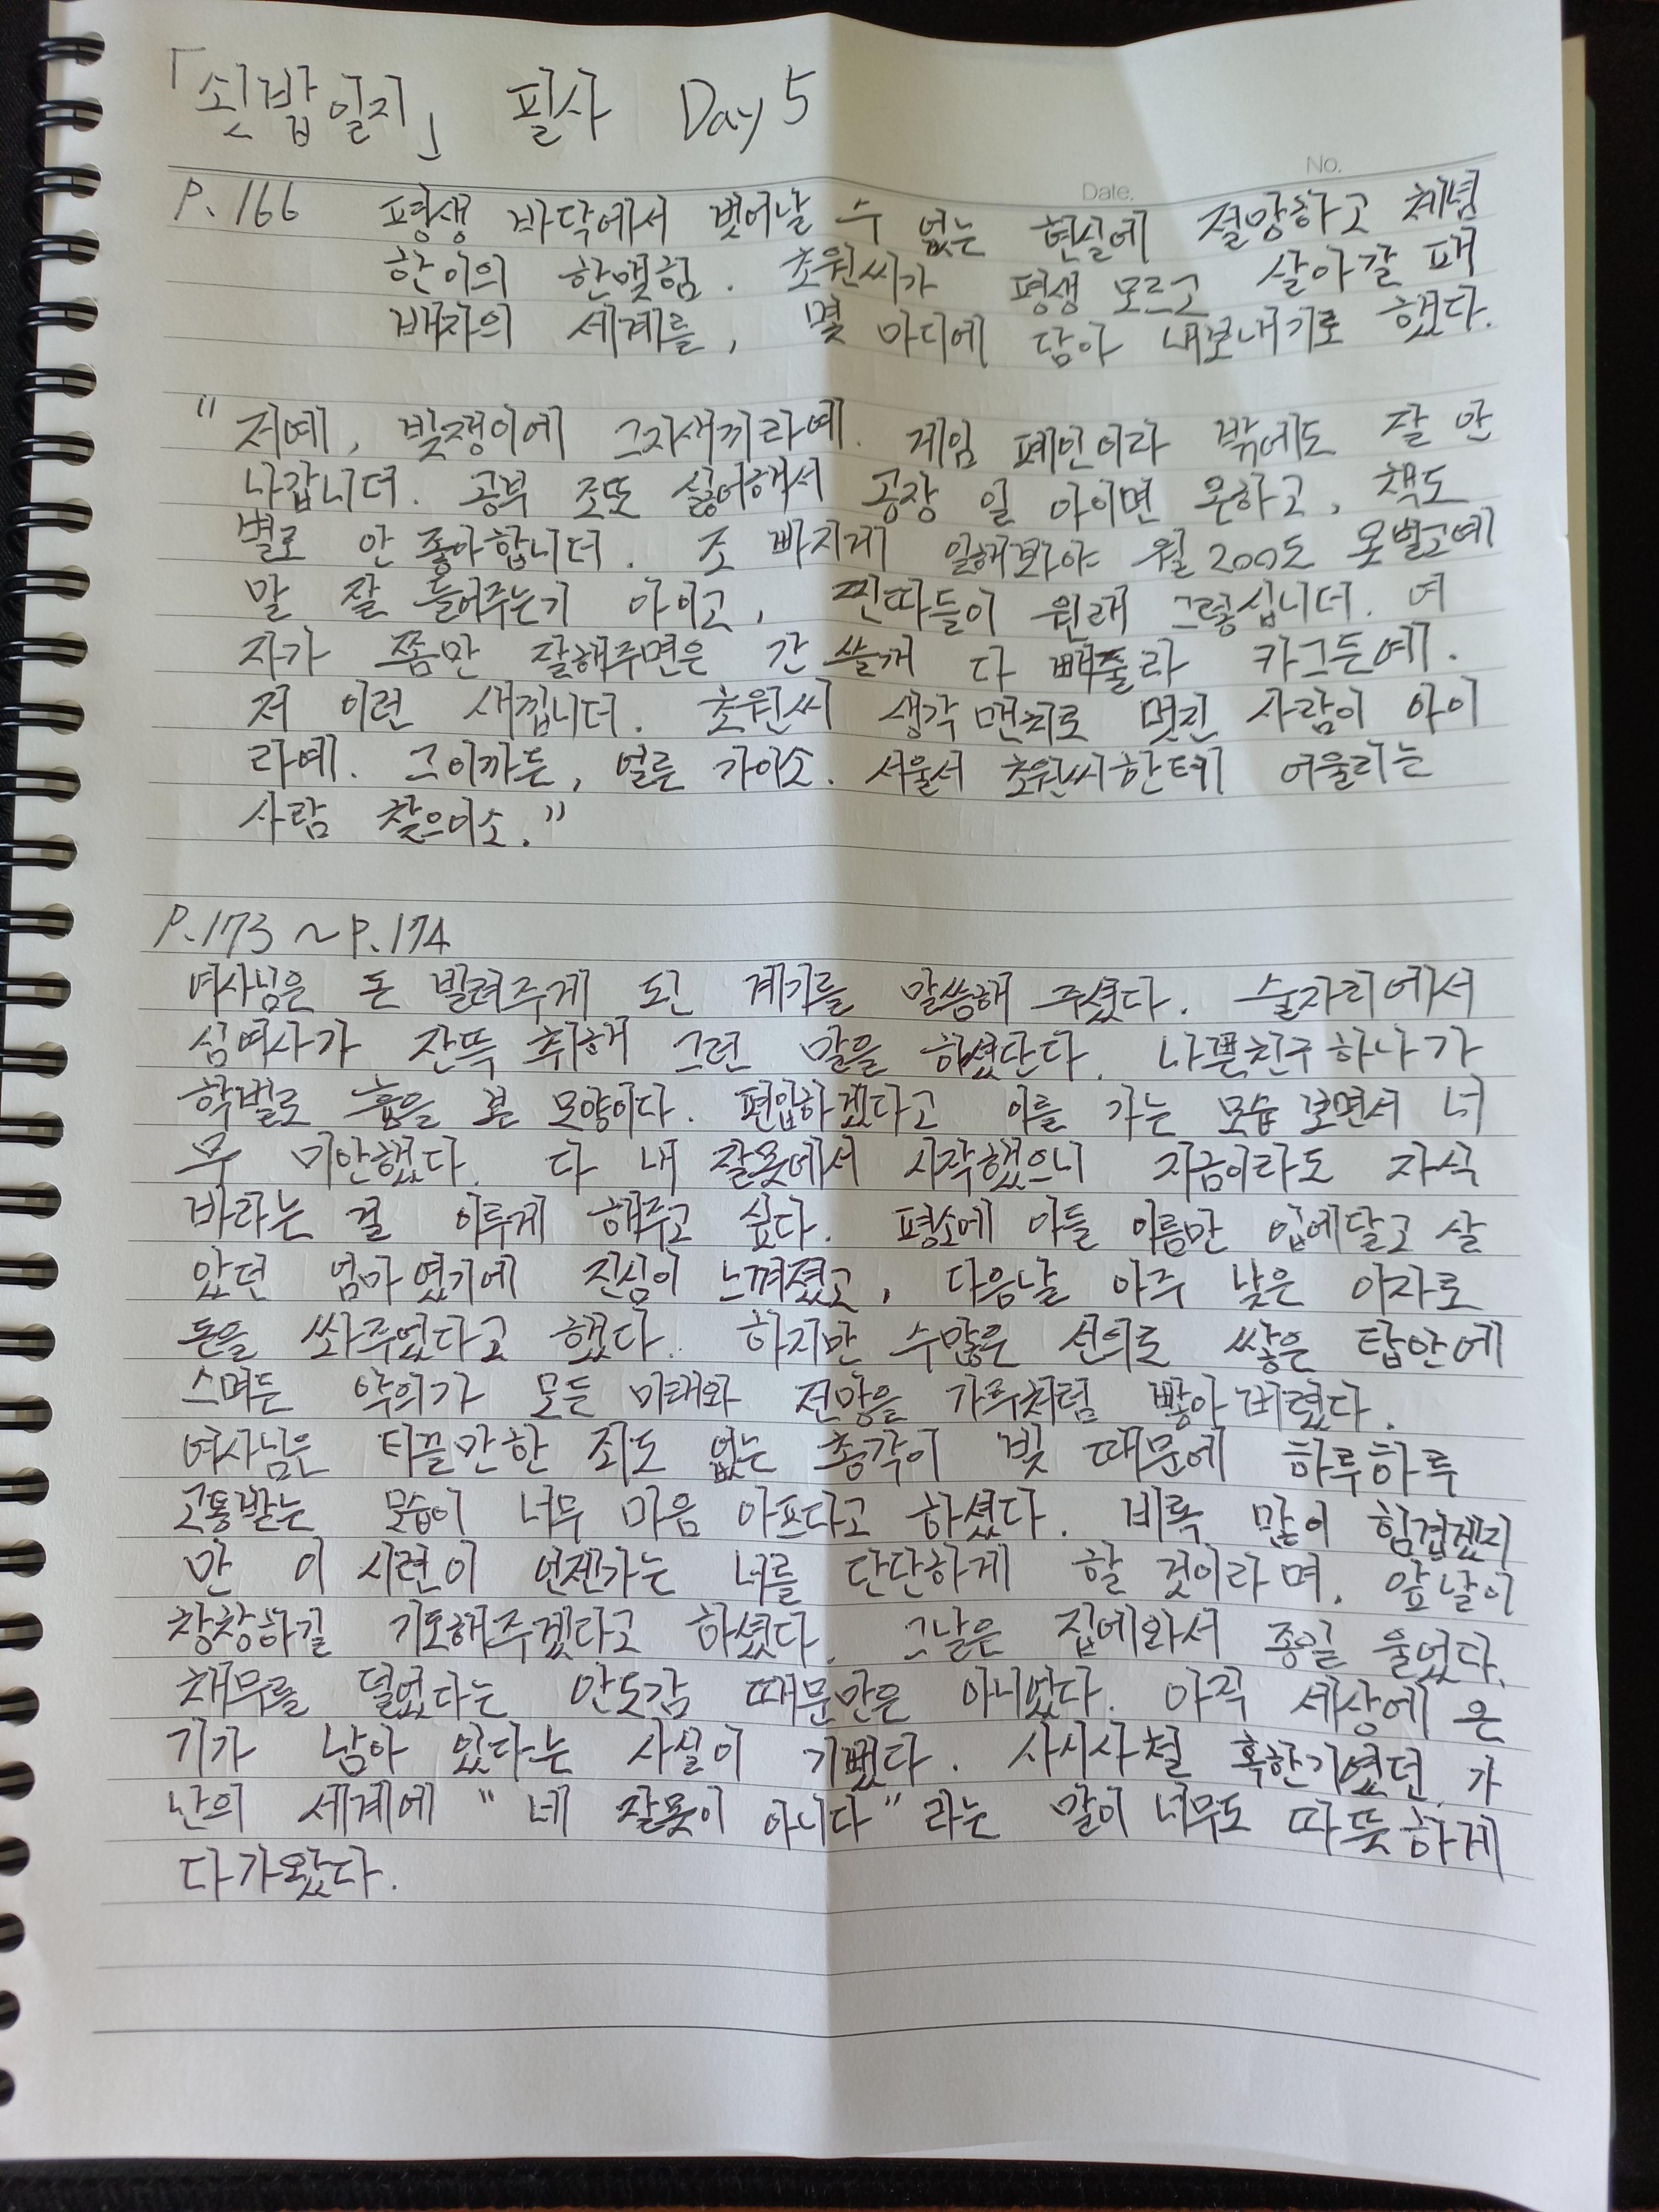 「쇳밥일지」 필사 Day 5
No.
Date.
P. 166 평생 바닥에서 벗어날 수 없는 현실에 절망하고 체념
한 이의 한맺힘. 초원씨가 평생 모르고 살아갈 패
배자의 세계를, 몇 마디에 담아 내보내기로 했다.
"저예, 빚쟁이에 그지새끼라예. 게임 폐인이라 밖에도 잘 안
나갑니더. 공부 조또 싫어해서 공장 일 아이면 못하고, 책도
별로 안 좋아합니더. 조 빠지게 일해봐야 월 200도 못벌고예
말 잘 들어주는기 아이고, 찐따들이 원래 그렇십니더. 여
자가 쫌만 잘해주면은 간 쓸개 다 빼줄라 카그든예.
저 이런 새낍니더. 초원씨 생각 맨치로 멋진 사람이 아이
라예. 그이까든, 얼른 가이소. 서울서 초원씨한테 어울리는
사람 찾으이소."
P. 173 ~ P. 174
여사님은 돈 빌려주게 된 계기를 말씀해 주셨다. 술자리에서
심여사가 잔뜩 취해 그런 말을 하셨단다. 나쁜친구 하나가
학벌로 흠을 본 모양이다. 편입하겠다고 이를 가는 모습 보면서 너
무 미안했다. 다 내 잘못에서 시작했으니 지금이라도 자식
바라는 걸 이루게 해주고 싶다. 평소에 아들 이름만 입에달고 살
았던 엄마였기에 진심이 느껴졌고, 다음날 아주 낮은 이자로
돈을 쏴주었다고 했다. 하지만 수많은 선의로 쌓은 탑안에
스며든 악의가 모든 미래와 전망을 가루처럼 빻아버렸다.
여사님은 티끌만한 죄도 없는 총각이 빚 때문에 하루하루
고통받는 모습이 너무 마음 아프다고 하셨다. 비록 많이 힘겹겠지
만 이 시련이 언젠가는 너를 단단하게 할 것이라며, 앞날이
창창하길 기도해주겠다고 하셨다. 그날은 집에와서 종일 울었다.
채무를 덜었다는 안도감 때문만은 아니었다. 아직 세상에 온
기가 남아 있다는 사실이 기뻤다. 사시사철 혹한기였던 가
난의 세계에 "네 잘못이 아니다"라는 말이 너무도 따뜻하게
다가왔다.